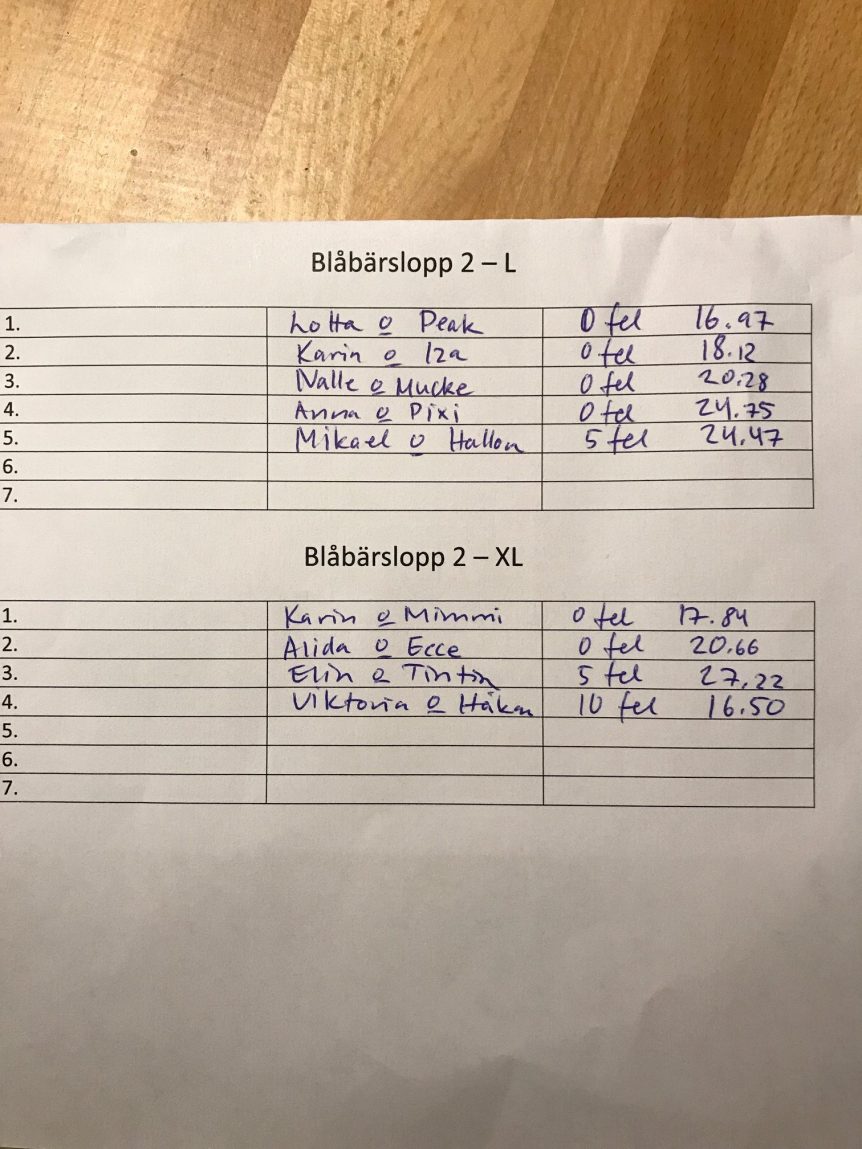 Blåbärslopp 2 – L
1. Lotta o Peak 0 fel 16.97
2. Karin o Iza 0 fel 18.12
3. Nalle o Mucke 0 fel 20.28
4. Anna o Pixi 0 fel 24.75
5. Mikael o Hallon 5 fel 24.47
6.
7.
Blåbärslopp 2 – XL
1. Karin o Mimmi 0 fel 17.84
2. Alida o Ecce 0 fel 20.66
3. Elin o Tintin 5 fel 27.22
4. Viktoria o Håkan 10 fel 16.50
5.
6.
7.